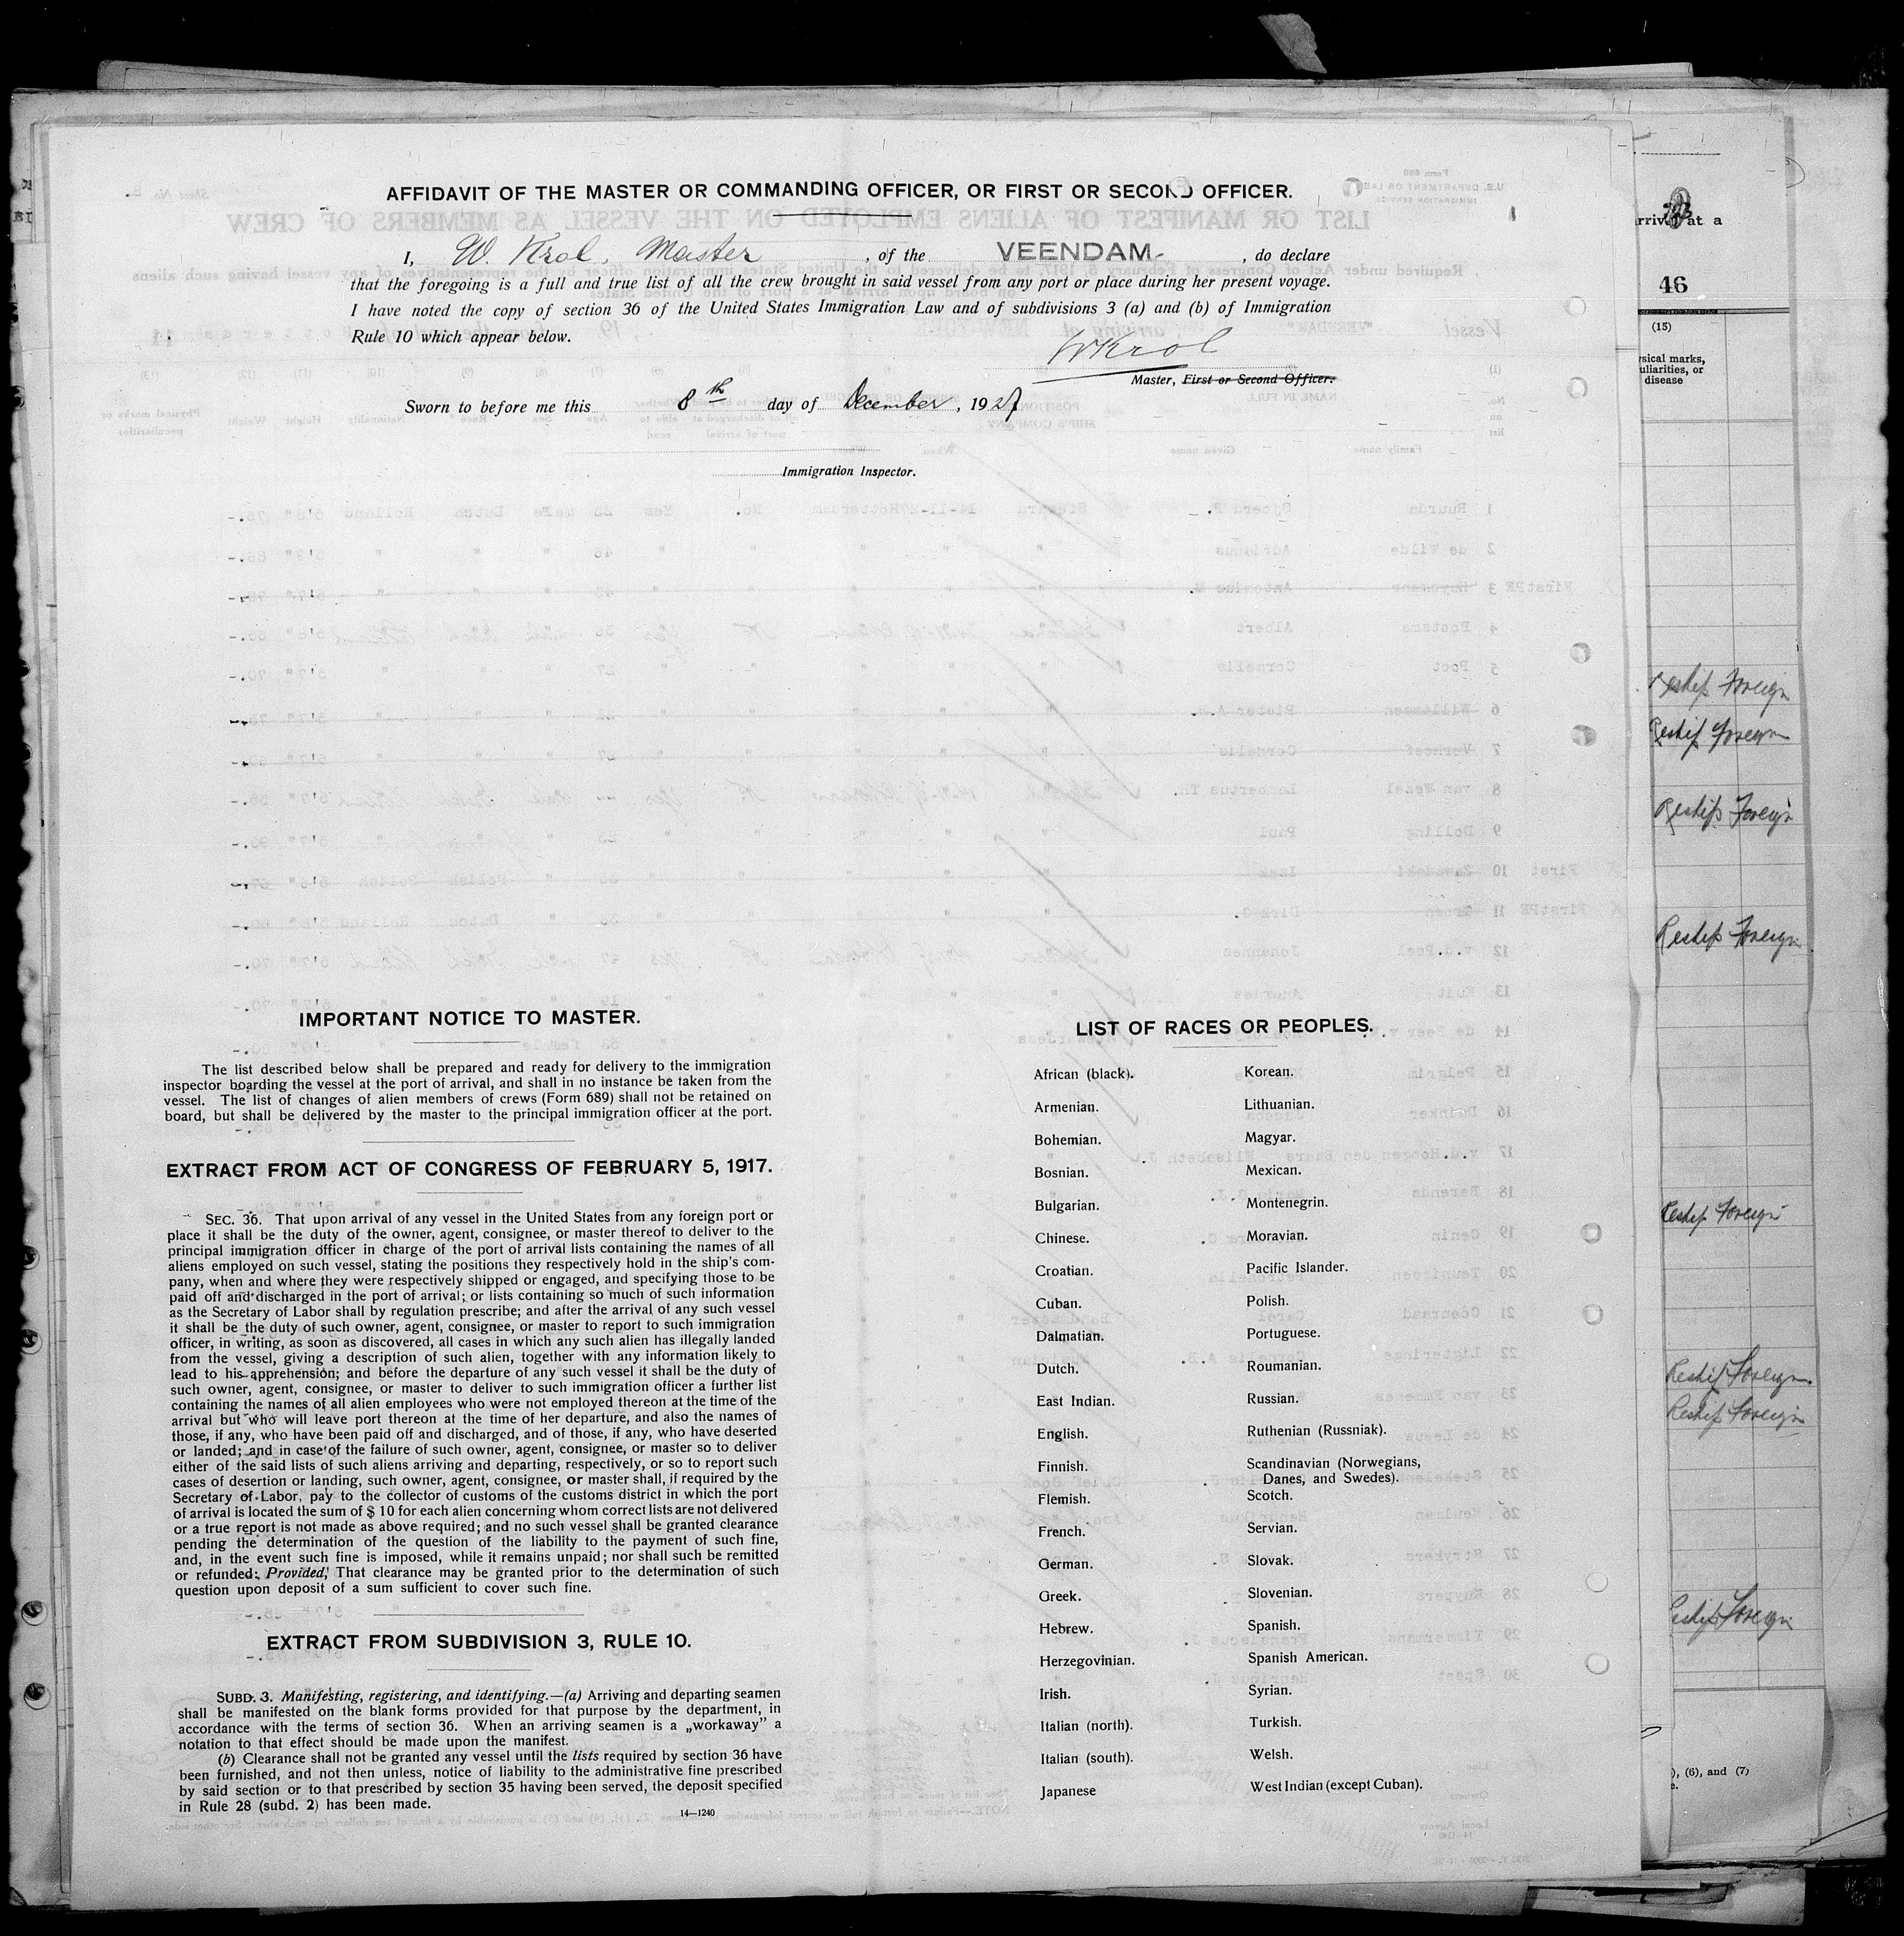 AFFIDAVIT OF THE MASTER OR COMMANDING OFFICER, OR FIRST OR SECOND OFFICER.
I, W. Krol, Master, of the VEENDAM, do declare
that the foregoing is a full and true list of all the crew brought in said vessel from any port or place during her present voyage.
I have noted the copy of section 36 of the United States Immigration Law and of subdivisions 3 (a) and (b) of Immigration
Rule 10 which appear below.
WKrol
Master, First or Second Officer.
Sworn to before me this 8th day of December, 1927
Immigration Inspector.
IMPORTANT NOTICE TO MASTER.
The list described below shall be prepared and ready for delivery to the immigration
inspector boarding the vessel at the port of arrival, and shall in no instance be taken from the
vessel. The list of changes of alien members of crews (Form 689) shall not be retained on
board, but shall be delivered by the master to the principal immigration officer at the port.
EXTRACT FROM ACT OF CONGRESS OF FEBRUARY 5, 1917.
SEC. 36. That upon arrival of any vessel in the United States from any foreign port or
place it shall be the duty of the owner, agent, consignee, or master thereof to deliver to the
principal immigration officer in charge of the port of arrival lists containing the names of all
aliens employed on such vessel, stating the positions they respectively hold in the ship's com-
pany, when and where they were respectively shipped or engaged, and specifying those to be
paid off and discharged in the port of arrival; or lists containing so much of such information
as the Secretary of Labor shall by regulation prescribe; and after the arrival of any such vessel
it shall be the duty of such owner, agent, consignee, or master to report to such immigration
officer, in writing, as soon as discovered, all cases in which any such alien has illegally landed
from the vessel, giving a description of such alien, together with any information likely to
lead to his apprehension; and before the departure of any such vessel it shall be the duty of
such owner, agent, consignee, or master to deliver to such immigration officer a further list
containing the names of all alien employees who were not employed thereon at the time of the
arrival but who will leave port thereon at the time of her departure, and also the names of
those, if any, who have been paid off and discharged, and of those, if any, who have deserted
or landed; and in case of the failure of such owner, agent, consignee, or master so to deliver
either of the said lists of such aliens arriving and departing, respectively, or so to report such
cases of desertion or landing, such owner, agent, consignee, or master shall, if required by the
Secretary of Labor, pay to the collector of customs of the customs district in which the port
of arrival is located the sum of $ 10 for each alien concerning whom correct lists are not delivered
or a true report is not made as above required; and no such vessel shall be granted clearance
pending the determination of the question of the liability to the payment of such fine,
and, in the event such fine is imposed, while it remains unpaid; nor shall such be remitted
or refunded: Provided, That clearance may be granted prior to the determination of such
question upon deposit of a sum sufficient to cover such fine.
EXTRACT FROM SUBDIVISION 3, RULE 10.
SUBD. 3. Manifesting, registering, and identifying.—(a) Arriving and departing seamen
shall be manifested on the blank forms provided for that purpose by the department, in
accordance with the terms of section 36. When an arriving seamen is a „workaway” a
notation to that effect should be made upon the manifest.
(b) Clearance shall not be granted any vessel until the lists required by section 36 have
been furnished, and not then unless, notice of liability to the administrative fine prescribed
by said section or to that prescribed by section 35 having been served, the deposit specified
in Rule 28 (subd. 2) has been made.
14—1240
LIST OF RACES OR PEOPLES.
African (black).
Armenian.
Bohemian.
Bosnian.
Bulgarian.
Chinese.
Croatian.
Cuban.
Dalmatian.
Dutch.
East Indian.
English.
Finnish.
Flemish.
French.
German.
Greek.
Hebrew.
Herzegovinian.
Irish.
Italian (north).
Italian (south).
Japanese
Korean.
Lithuanian.
Magyar.
Mexican.
Montenegrin.
Moravian.
Pacific Islander.
Polish.
Portuguese.
Roumanian.
Russian.
Ruthenian (Russniak).
Scandinavian (Norwegians,
Danes, and Swedes).
Scotch.
Servian.
Slovak.
Slovenian.
Spanish.
Spanish American.
Syrian.
Turkish.
Welsh.
West Indian (except Cuban).
at a
46
(15)
marks,
or
disease
Reship Foreign
Reship Foreign
Reship Foreign
Reship Foreign
Reship Foreign
Reship Foreign
Reship Foreign
Reship Foreign
(6), and (7)